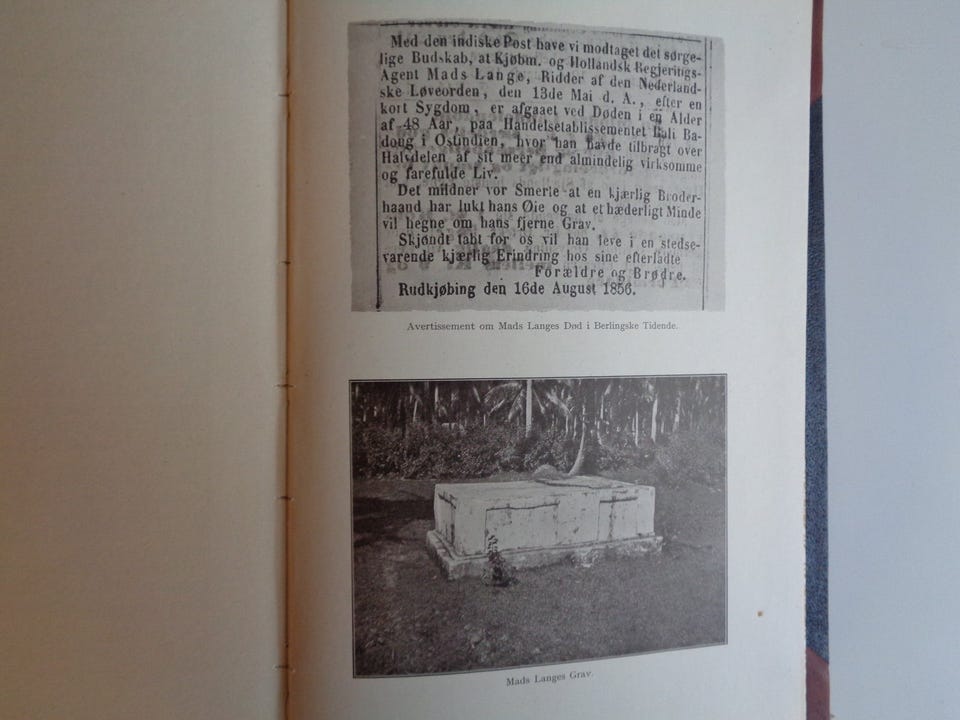 Med den indiske Post have vi modtaget det sørge-
lige Budskab, at Kjøbm. og Hollandsk Regjerings-
Agent Mads Lange, Ridder af den Nederland-
ske Løveorden, den 13de Mai d. A., efter en
kort Sygdom, er afgaaet ved Døden i en Alder
af 48 Aar, paa Handelsetablissementet Bali Ba-
doug i Ostindien, hvor han havde tilbragt over
Halvdelen af sit meer end almindelig virksomme
og farefulde Liv.
Det mildner vor Smerte at en kjærlig Broder-
haand har lukt hans Øie og at et hæderligt Minde
vil hegne om hans fjerne Grav.
Skjøndt tabt for os vil han leve i en stedse-
varende kjærlig Erindring hos sine efterladte
Forældre og Brødre.
Rudkjøbing den 16de August 1856.
Avertissement om Mads Langes Død i Berlingske Tidende.
Mads Langes Grav.